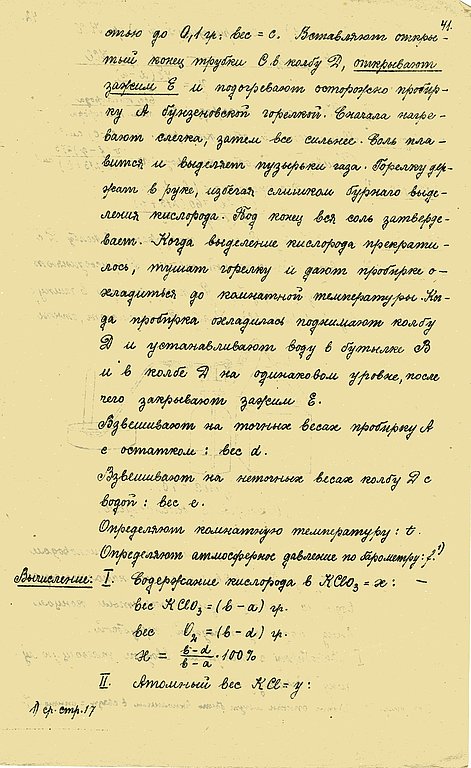 41.
стью до 0,1 гр: вес = c. Вставляют откры-
тый конец трубки C в колбу D, открывают
зажим E и подогревают осторожно пробир-
ку A бунзеновской горелкой. Сначала нагре-
вают слегка, затем все сильнее. Соль пла-
вится и выделяет пузырьки газа. Горелку дер-
жат в руке, избегая слишком бурнаго выде-
ления кислорода. Под конец вся соль затверде-
вает. Когда выделение кислорода прекрати-
лось, тушат горелку и дают пробирке о-
хладиться до комнатной температуры. Ког-
да пробирка охладилась поднимают колбу
D и устанавливают воду в бутылке B
и в колбе D на одинаковом уровне, после
чего закрывают зажим E.
Взвешивают на точных весах пробирку A
с остатком : вес d.
Взвешивают на неточных весах колбу D с
водой : вес e.
Определяют комнатную температуру : t.
Определяют атмосферное давление по барометру: f.¹)
Вычисление: I. Содержание кислорода в KClO₃ = x : —
вес KClO₃ = (b – a) гр.
вес O₂ = (b – d) гр.
x = (b – d)/(b – a) · 100%
II. Атомный вес KCl = y :
1) ср. стр. 17